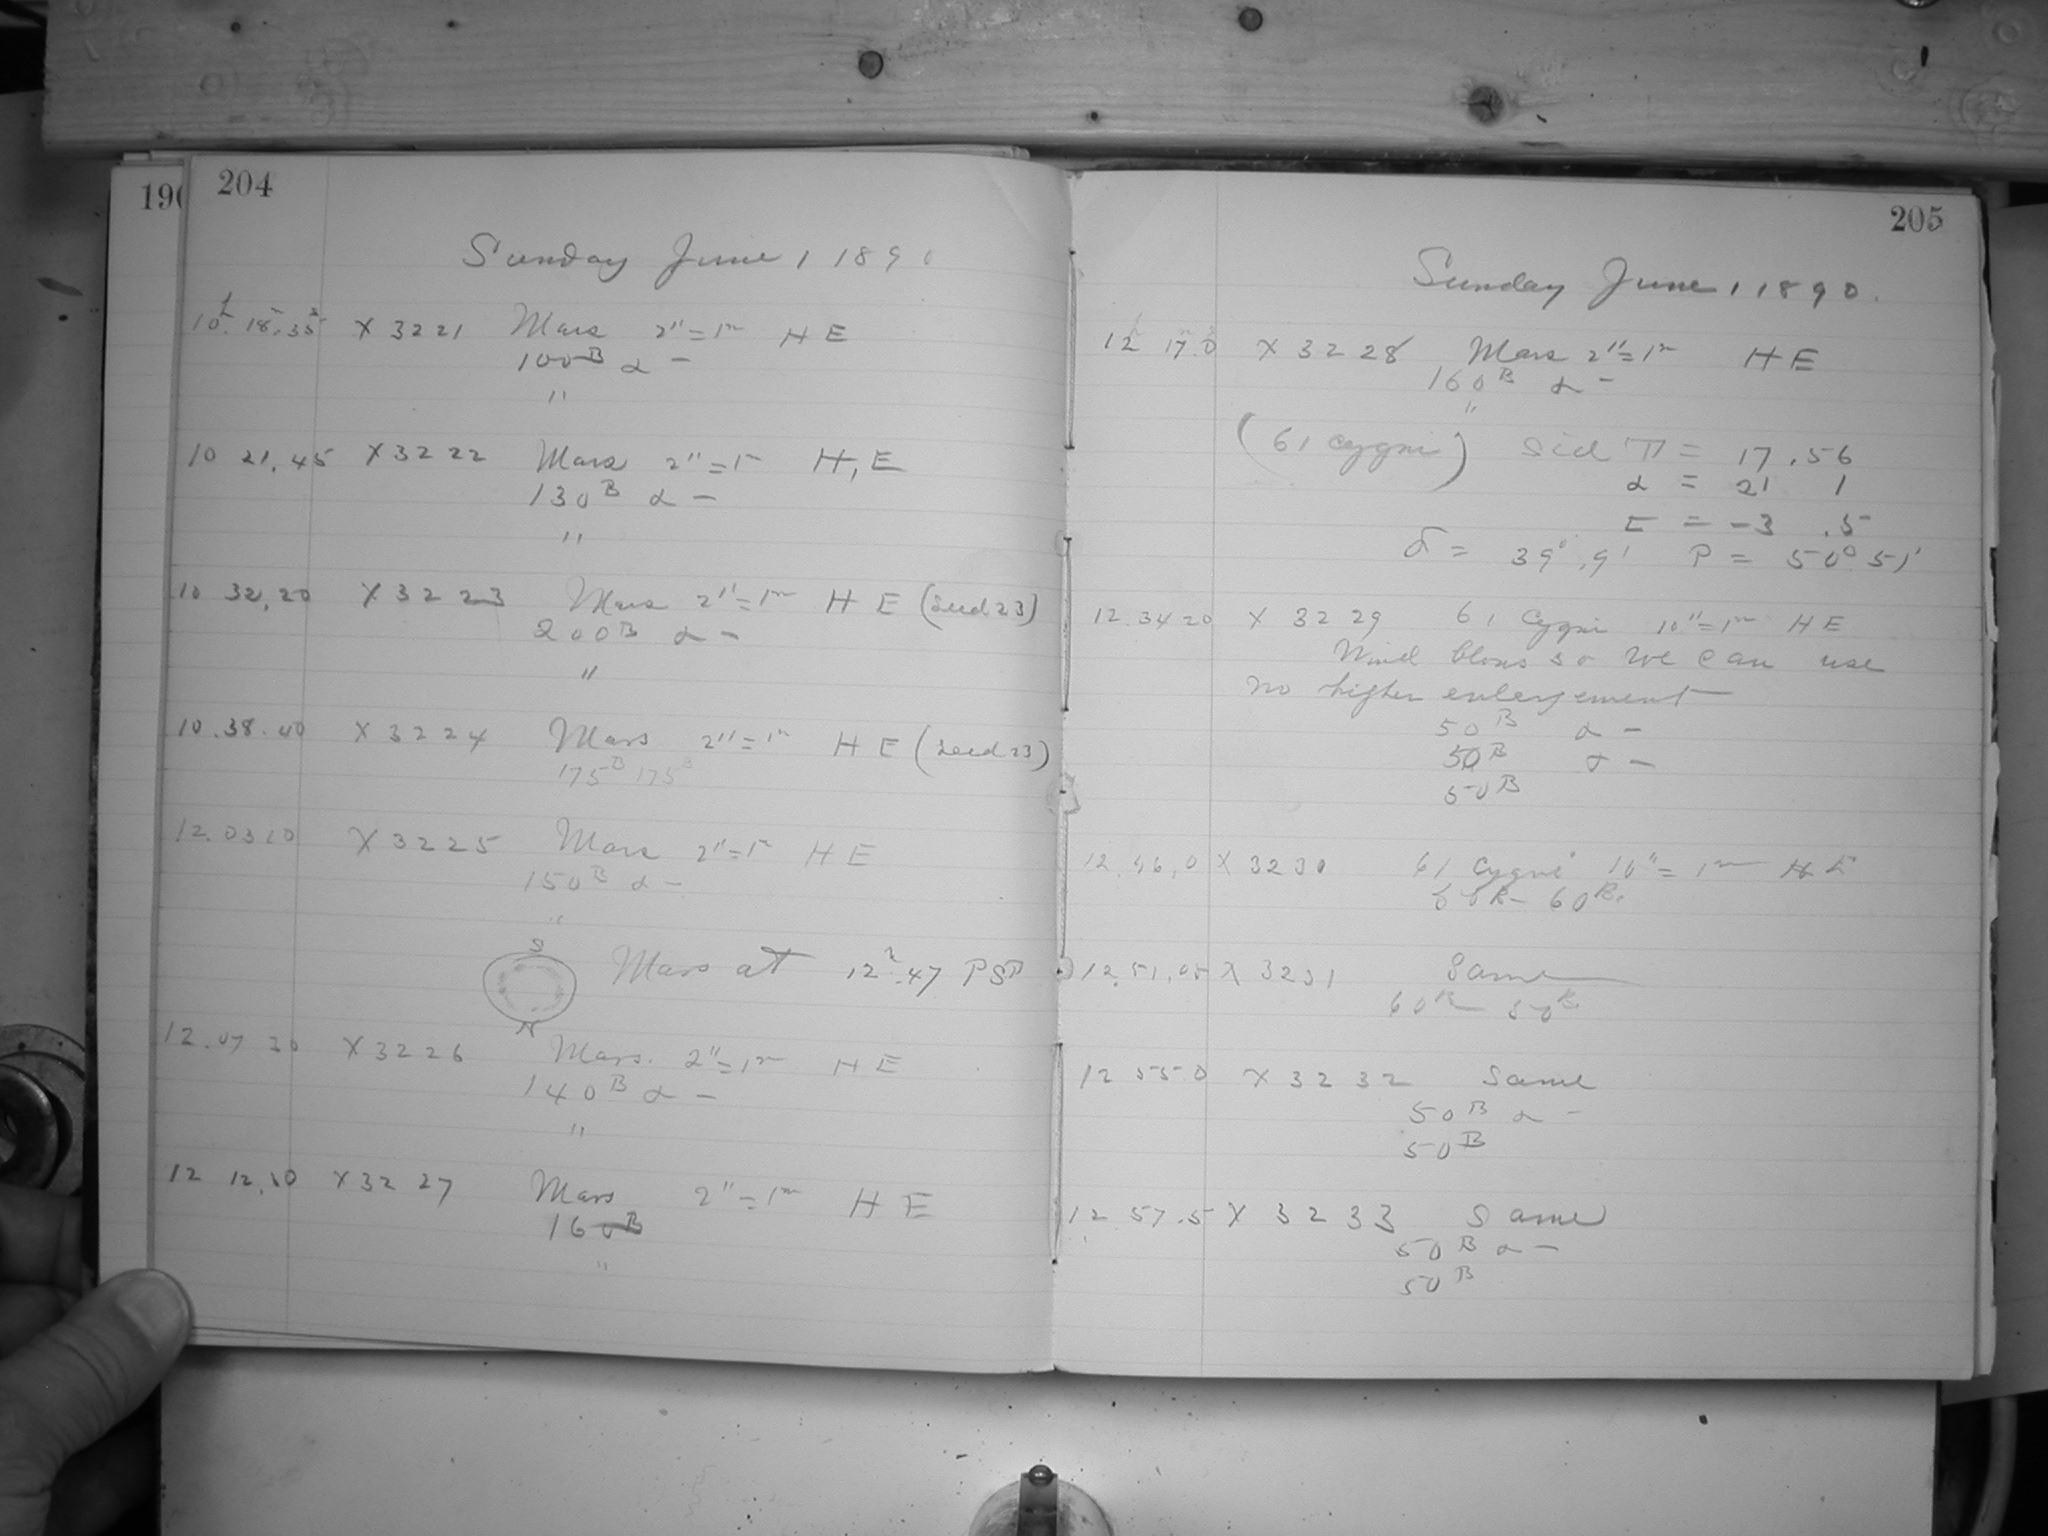 190
204
Sunday June 1 1890
10h. 18m. 35s X 3221 Mars 2"=1m H E
100B α –
"
10 21.45 X 3222 Mars 2"=1m H, E
130B α –
"
10 32.20 X 3223 Mars 2"=1m H E (Seed 23)
200B α –
"
10.38.40 X 3224 Mars 2"=1m H E (Seed 23)
175B 175B
12.03 10 X 3225 Mars 2"=1m H E
150B α –
"
S
Mars at 12h.47
N
12.07 30 X 3226 Mars. 2"=1m H E
140B α –
"
12 12.10 X 3227 Mars 2"=1m H E
160B
"
205
Sunday June 1 1890.
12h 17m.0s X 3228 Mars 2"=1m H E
160B α –
"
(61 Cygni) Sid T = 17.56
α = 21 1
E = –3 .5
δ = 39°.9' P = 50° 51'
12.34 20 X 3229 61 Cygni 10"=1m H E
Wind blows so we can use
no higher enlargement
50B α –
50B α –
50B
12.46.0 X 3230 61 Cygni 10"=1m H E
60B.
12.51.05 X 3231 Same
60B 50B
12 55.0 X 3232 Same
50B α –
50B
12 57.5 X 3233 Same
50B α –
50B